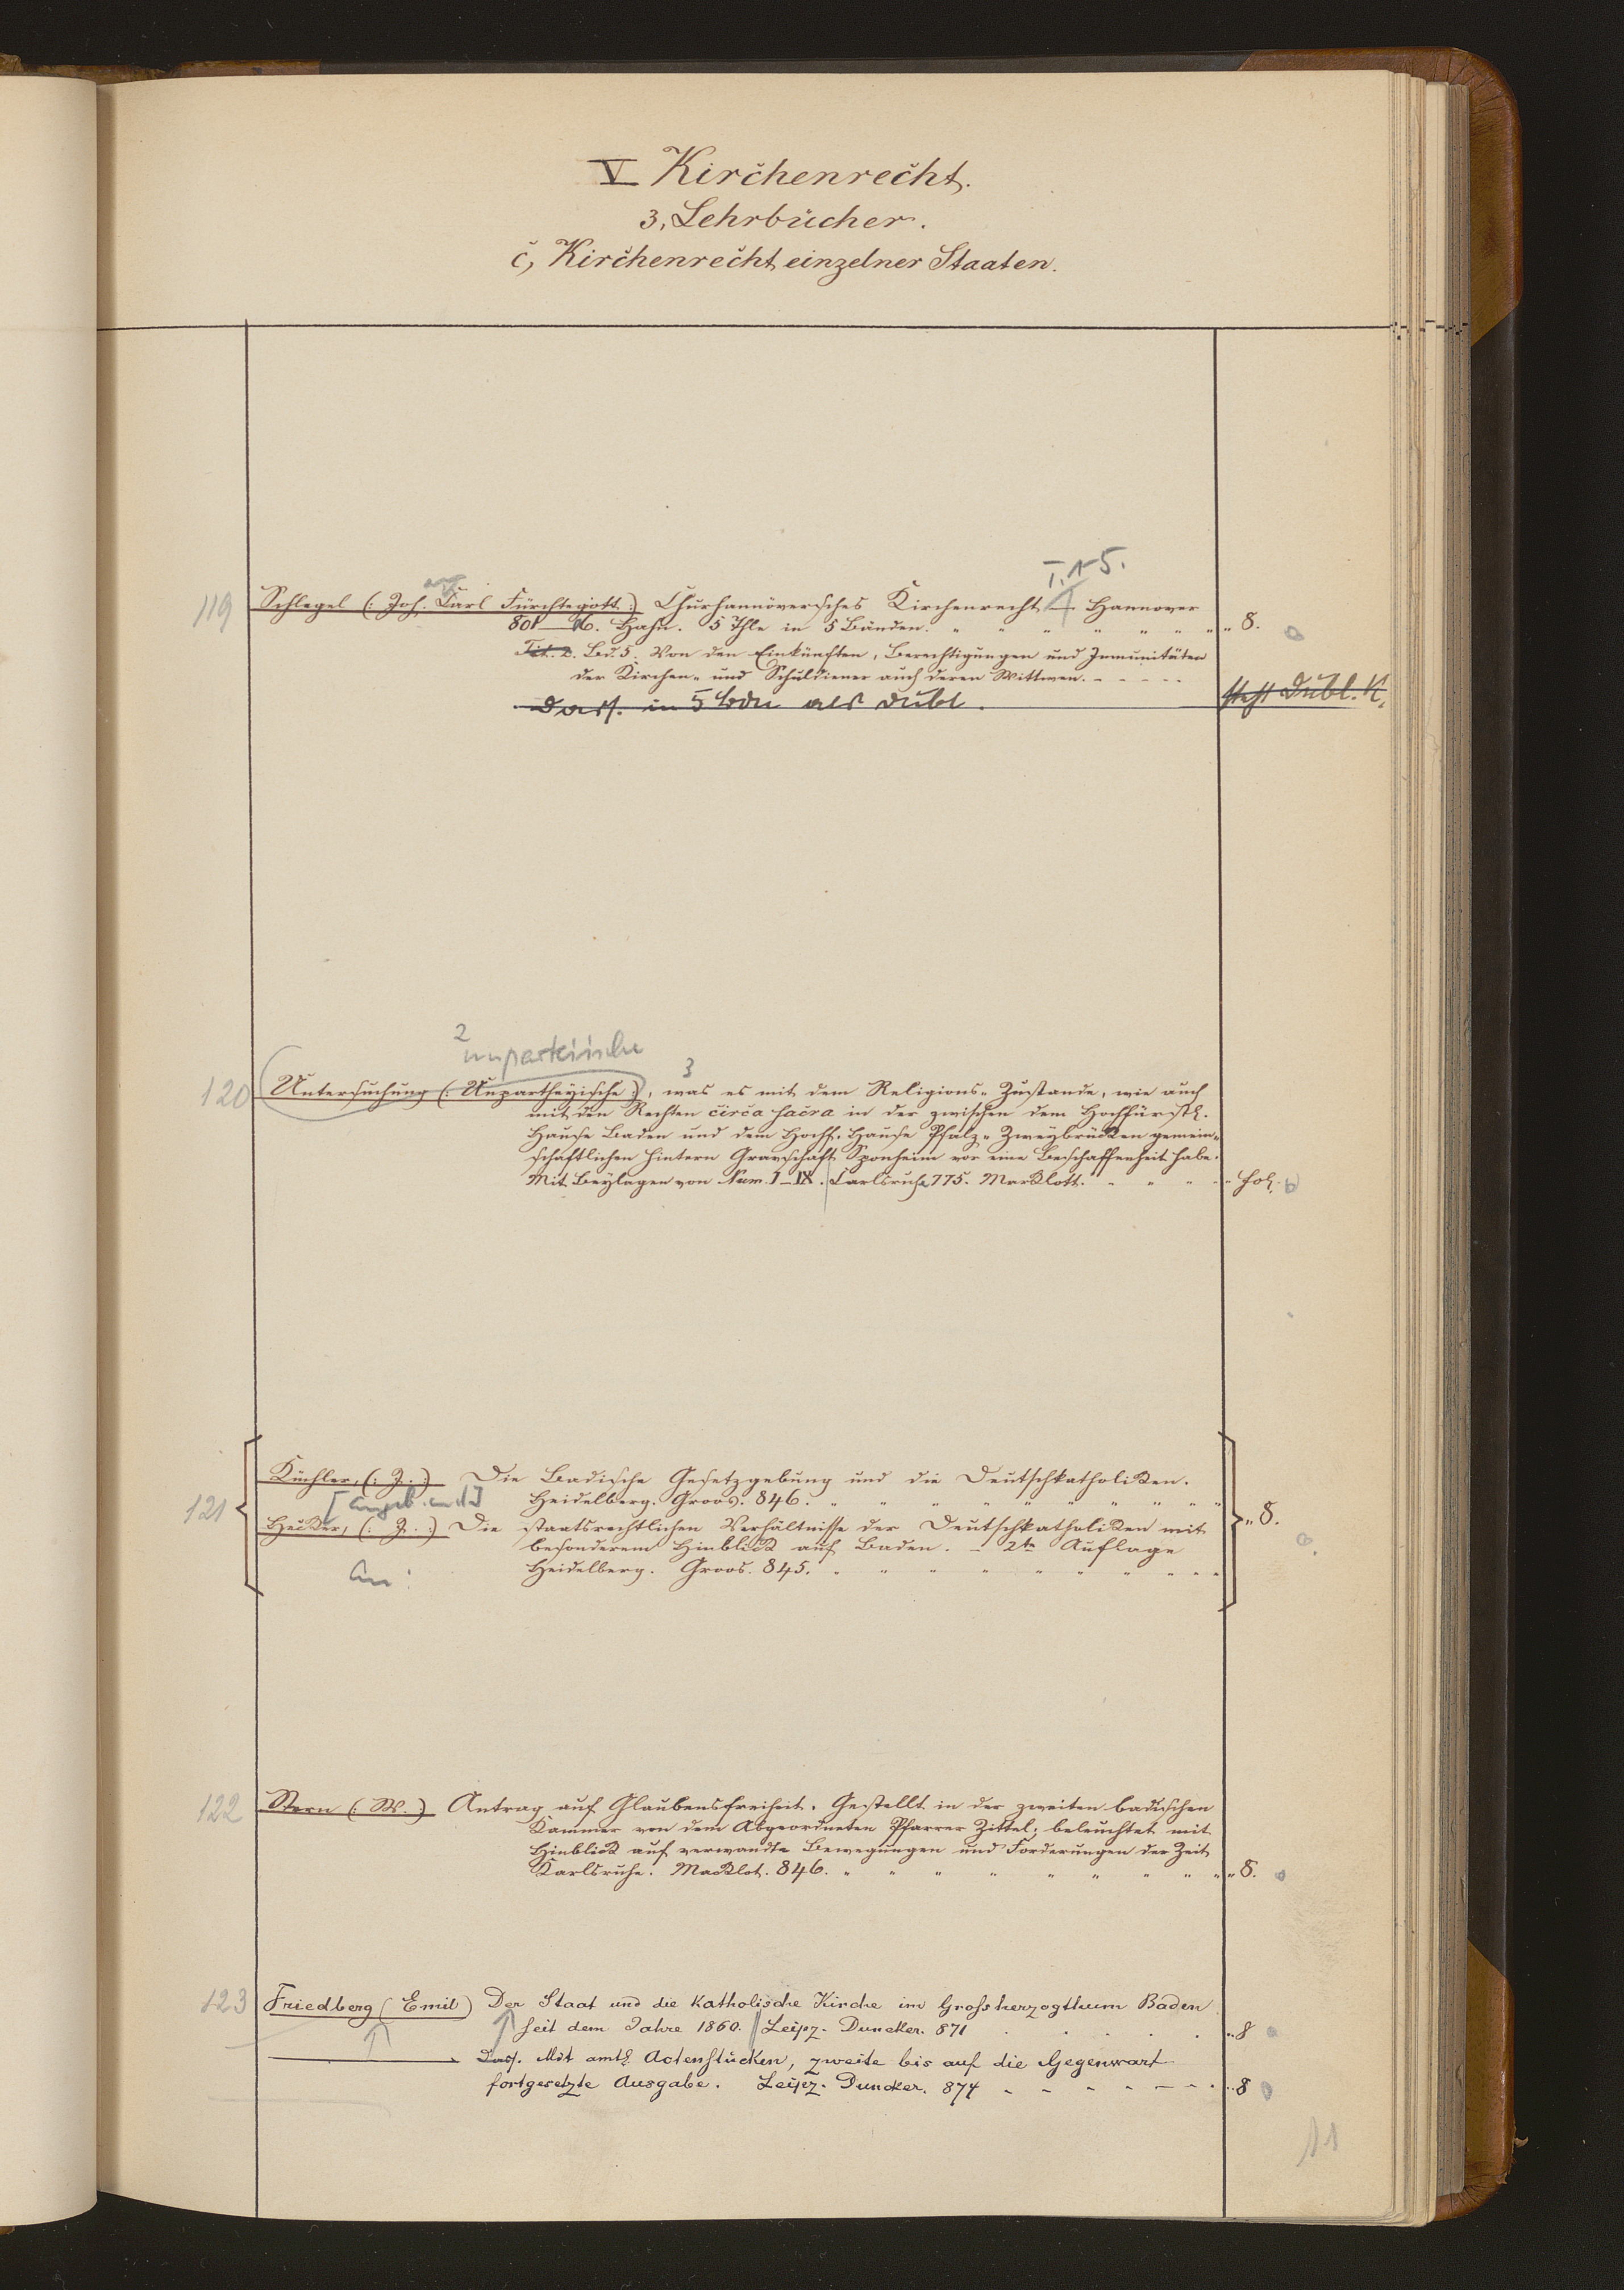 V Kirchenrecht.
3, Lehrbücher.
c, Kirchenrecht einzelner Staaten.
T. 1-5.
119 Schlegel (: Joh. Carl Fürchtegott :) Churhannöversches Kirchenrecht – Hannover
801–6. Hahn. 5 Thle in 5 Bänden. " " " " " " " 8.
Tit. 2. Bd. 5. Von den Einkünften, Berechtigungen und Immunitäten
der Kirchen- und Schuldiener auch deren Wittwen. - - - - -
Dass. in 5 Bdn als Dubl. steht Dubl. K.
2 3
unparteiische
120 Untersuchung (: Unpartheyische :), was es mit dem Religions-Zustande, wie auch
mit den Rechten circa sacra in der zwischen dem Hochfürstl.
Hause Baden und dem Hochf. Hause Pfalz-Zweybrücken gemein-
schaftlichen hintern Gravschaft Sponheim vor eine Beschaffenheit habe.
Mit Beylagen von Num. I–IX. Carlsruhe 775. Marklott. " " " " Fol.
Küchler, (: J. :) Die Badische Gesetzgebung und die Deutschkatholiken.
121 Heidelberg. Groos. 846. " " " " " " " " " " 8.
Hecker, (: J. :) Die staatsrechtlichen Verhältnisse der Deutschkatholiken mit
besonderem Hinblick auf Baden. – 2te Auflage
An: Heidelberg. Groos. 845. " " " " " " " " "
122 Stern (: W. :) Antrag auf Glaubensfreiheit. Gestellt in der zweiten badischen
Kammer von dem Abgeordneten Pfarrer Zittel; beleuchtet mit
Hinblick auf verwandte Bewegungen und Forderungen der Zeit
Karlsruhe. Macklot. 846. " " " " " " " " " 8.
123 Friedberg (Emil) Der Staat und die katholische Kirche im Grossherzogthum Baden
seit dem Jahre 1860. Leipz. Duncker. 871 . . . . . " 8
——— Dass. Mit amtl. Actenstücken, zweite bis auf die Gegenwart
fortgesetzte Ausgabe. Leipz. Duncker. 874 - - - - - - . . 8
11